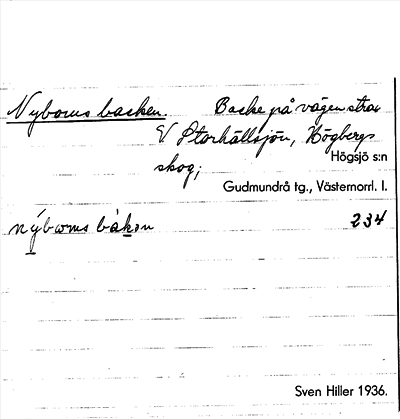 Nyboms backen. Backe på vägen strax
V. Storhällsjön, Högbergs
skog;
Högsjö s:n
Gudmundrå tg., Västernorrl. l.
nyboms bakən 234
Sven Hiller 1936.